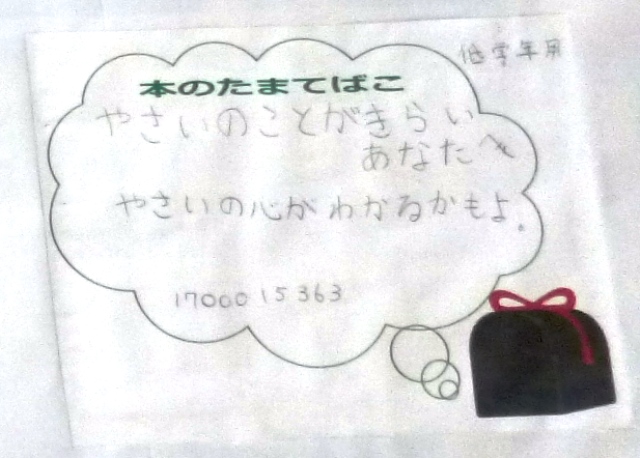 低学年用
本のたまてばこ
やさいのことがきらい
あなたへ
やさいの心がわかるかもよ。
1700015363